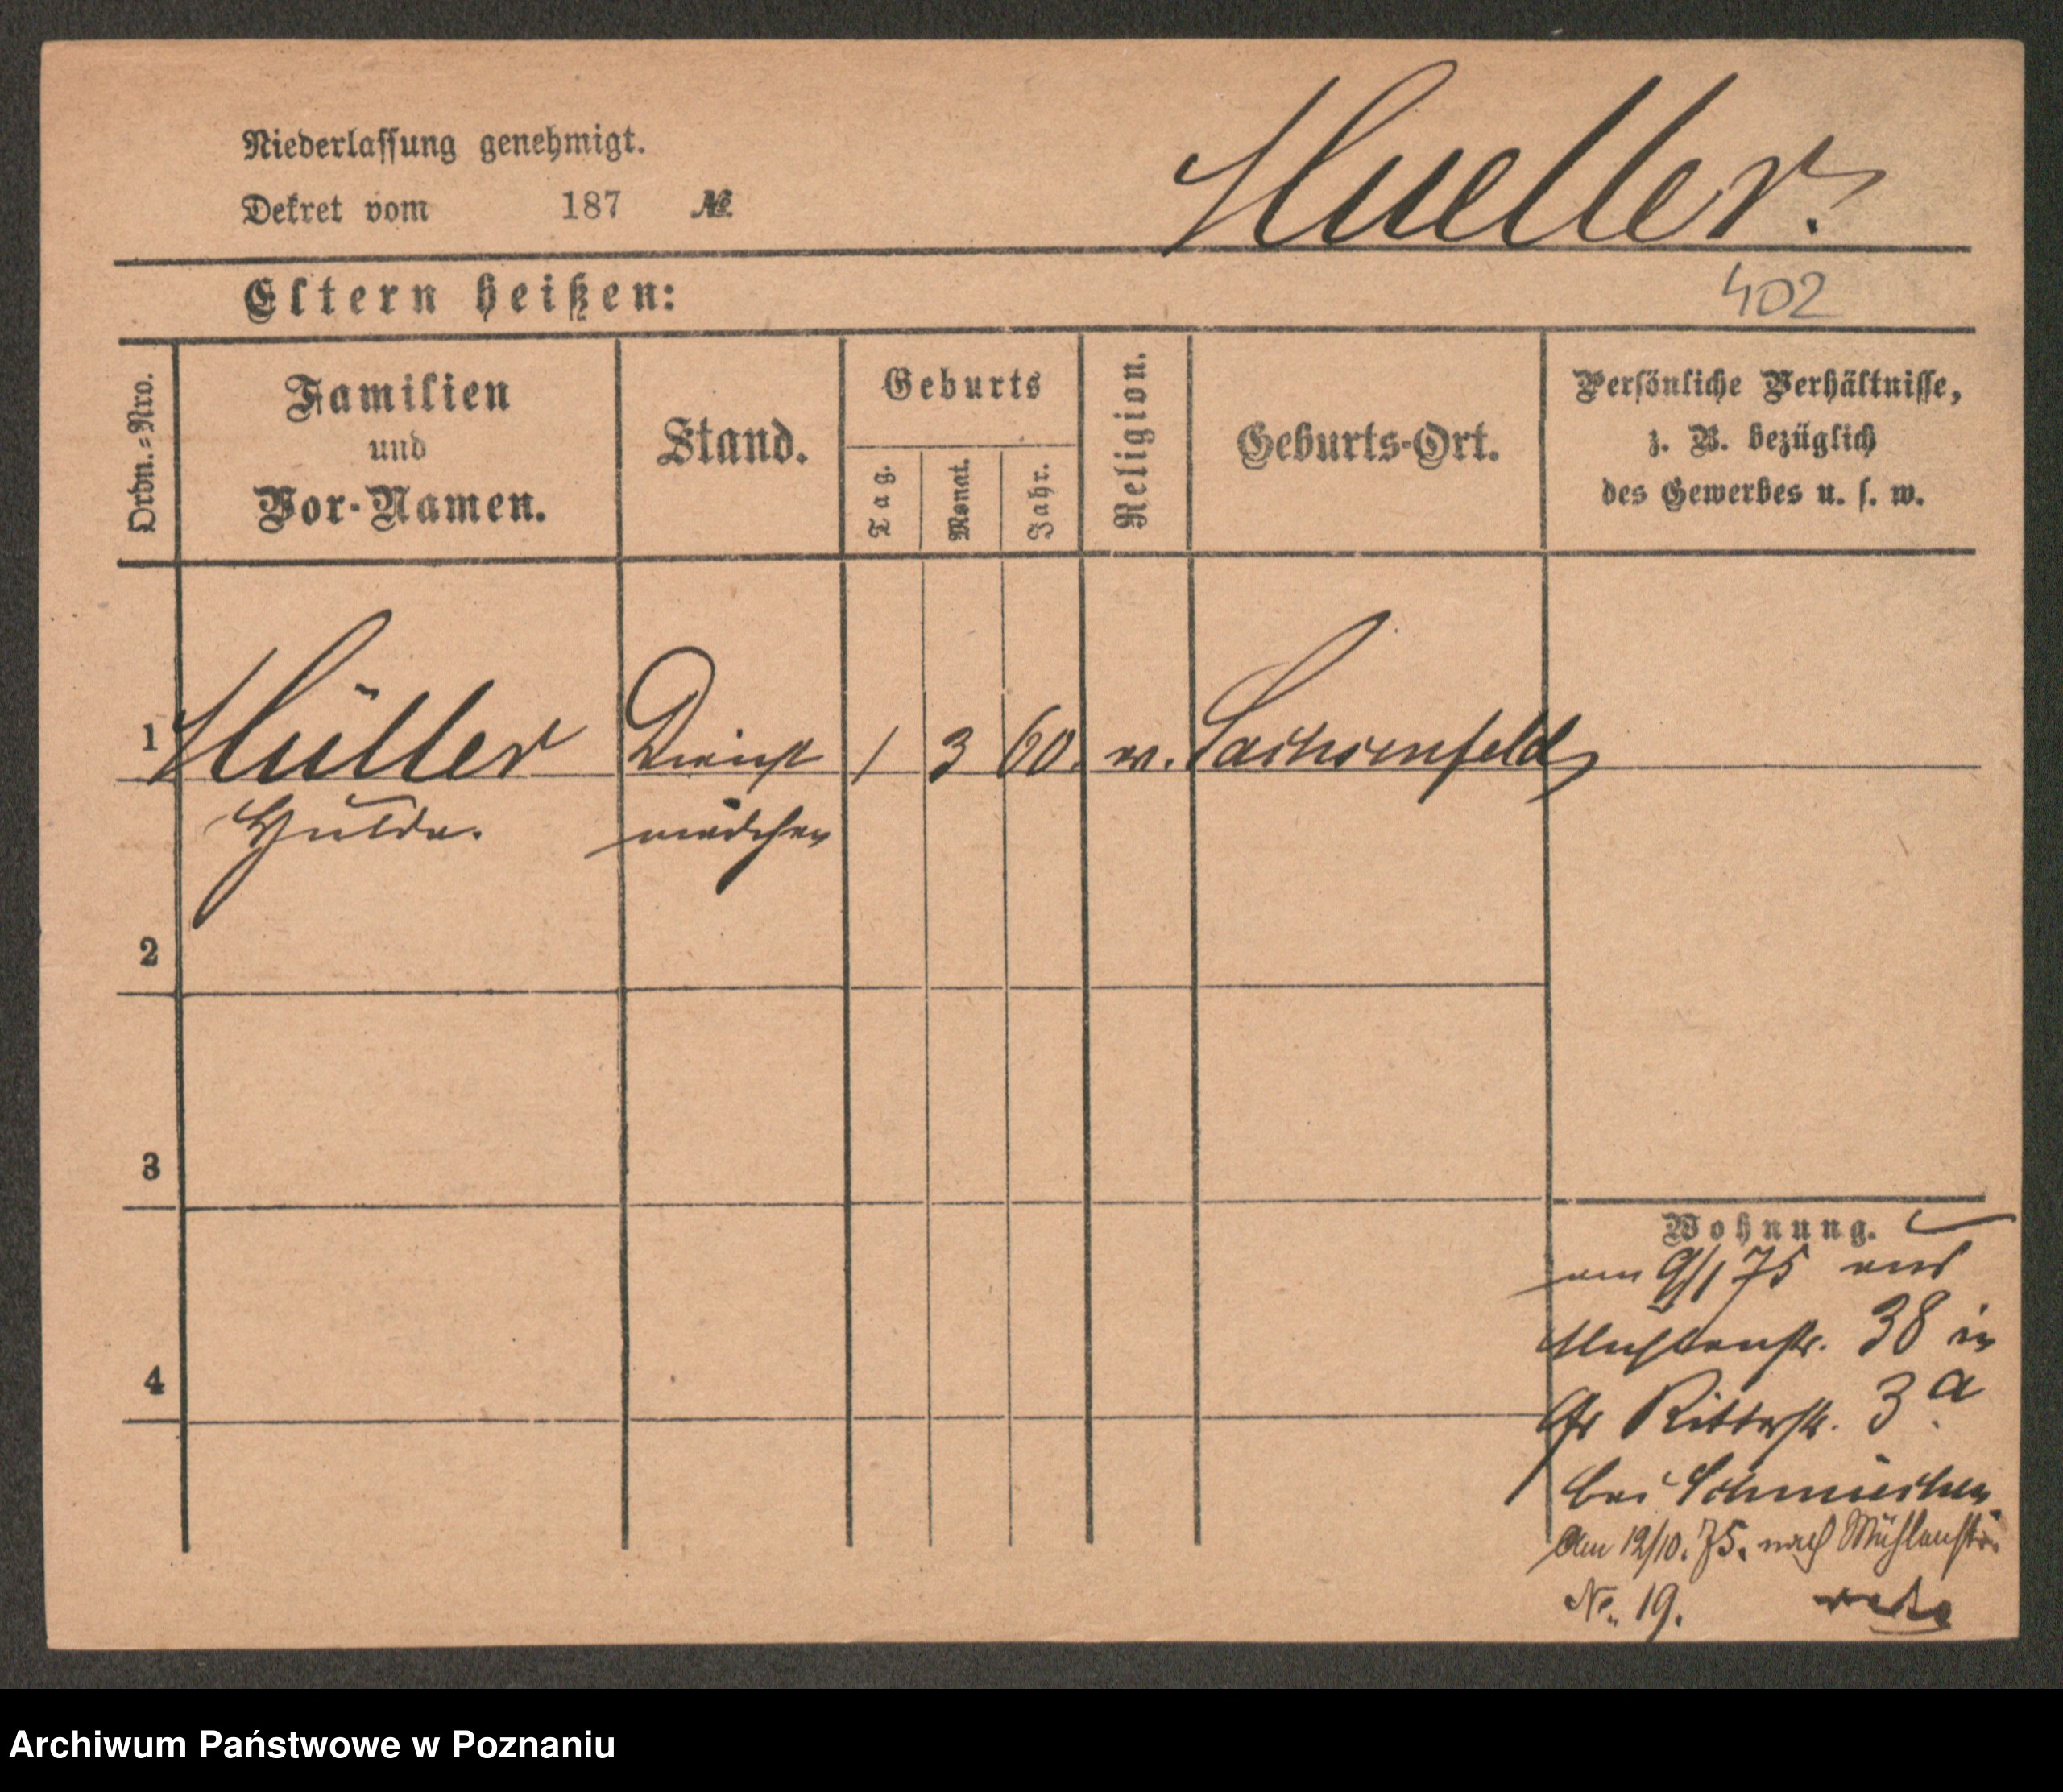 Niederlassung genehmigt.
Dekret vom 187 №
Hueller.
Eltern heißen:
402
Ordn.=Nro.
Familien
und
Vor-Namen.
Stand.
Geburts
Tag.
Monat.
Jahr.
Religion.
Geburts-Ort.
Persönliche Verhältnisse,
z. B. bezüglich
des Gewerbes u. s. w.
1 Hüller Dienst 1 3 60. Sachsenfeld
Hulda. mädchen
2
3
4
Wohnung.
am 9/1 75 aus
38 in
Gr Ritterstr. 3 a
bei
Am 12/10. 75. nach Mühlenstr.
No. 19.
Archiwum Państwowe w Poznaniu